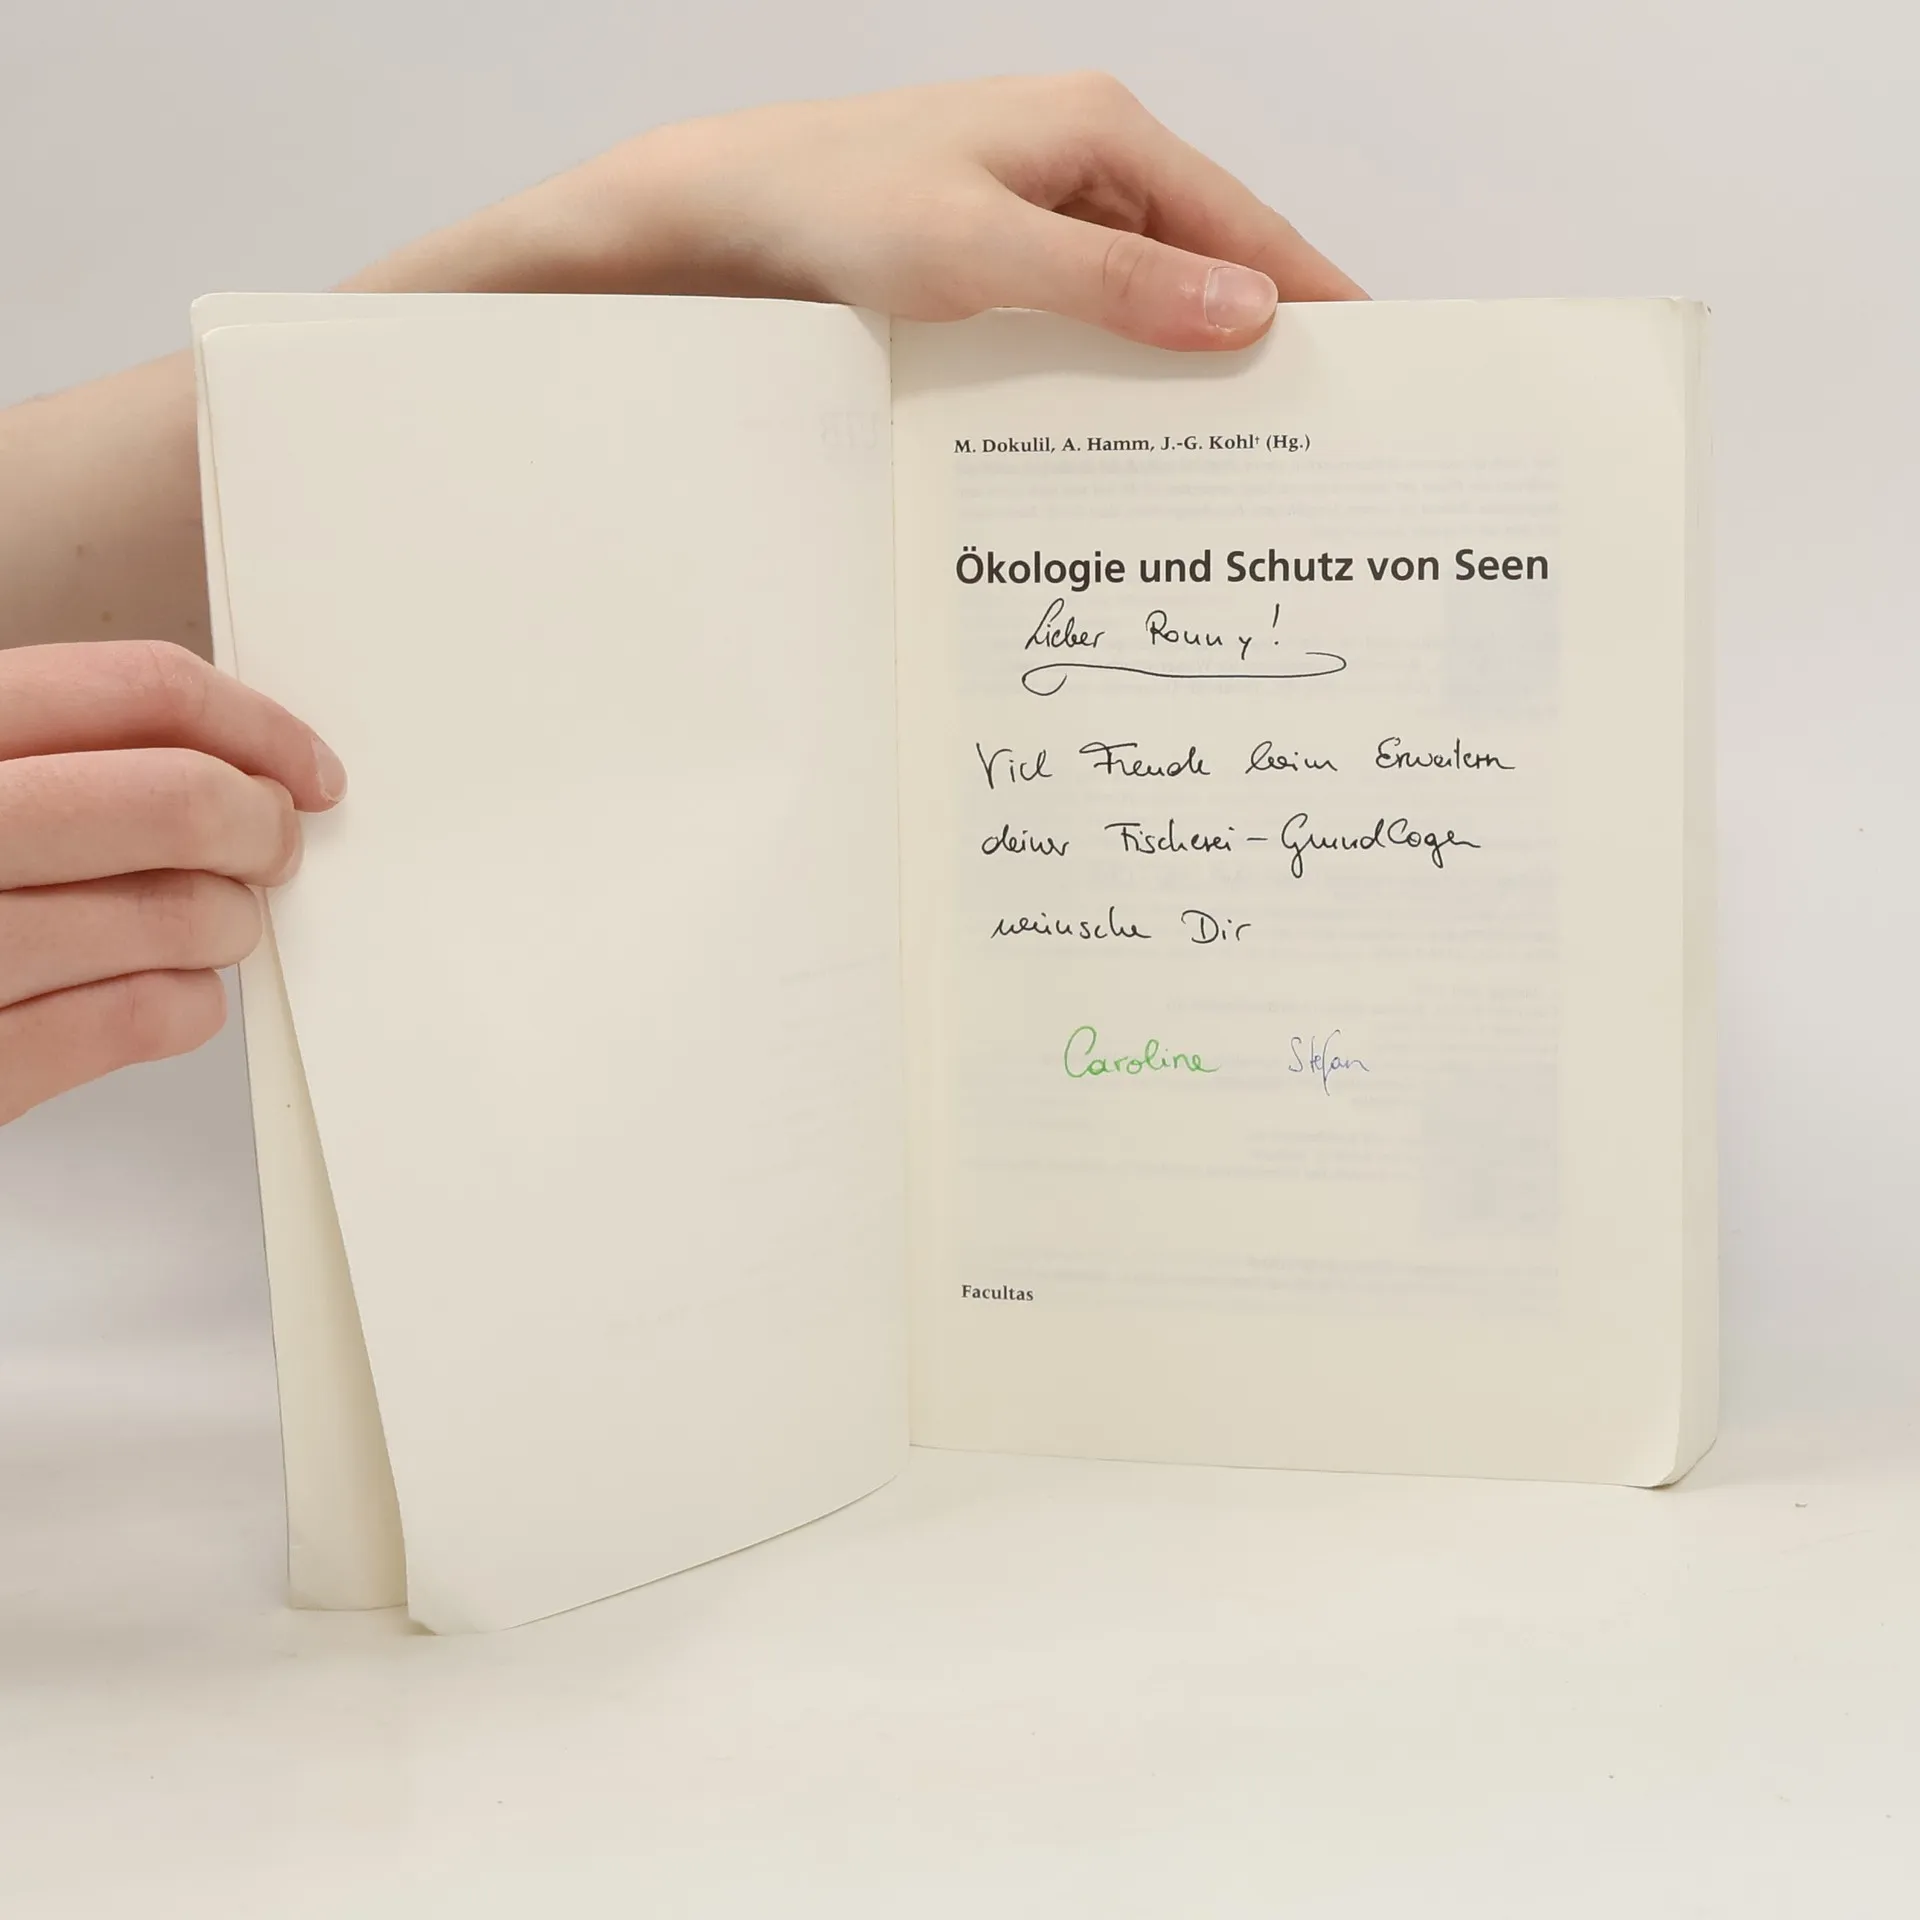 M. Dokulil, A. Hamm, J.-G. Kohl† (Hg.)
Ökologie und Schutz von Seen
Lieber Ronny!
Viel Freude beim Erweitern
deiner Fischerei-Grundlagen
wünsche Dir
Caroline Stefan
Facultas